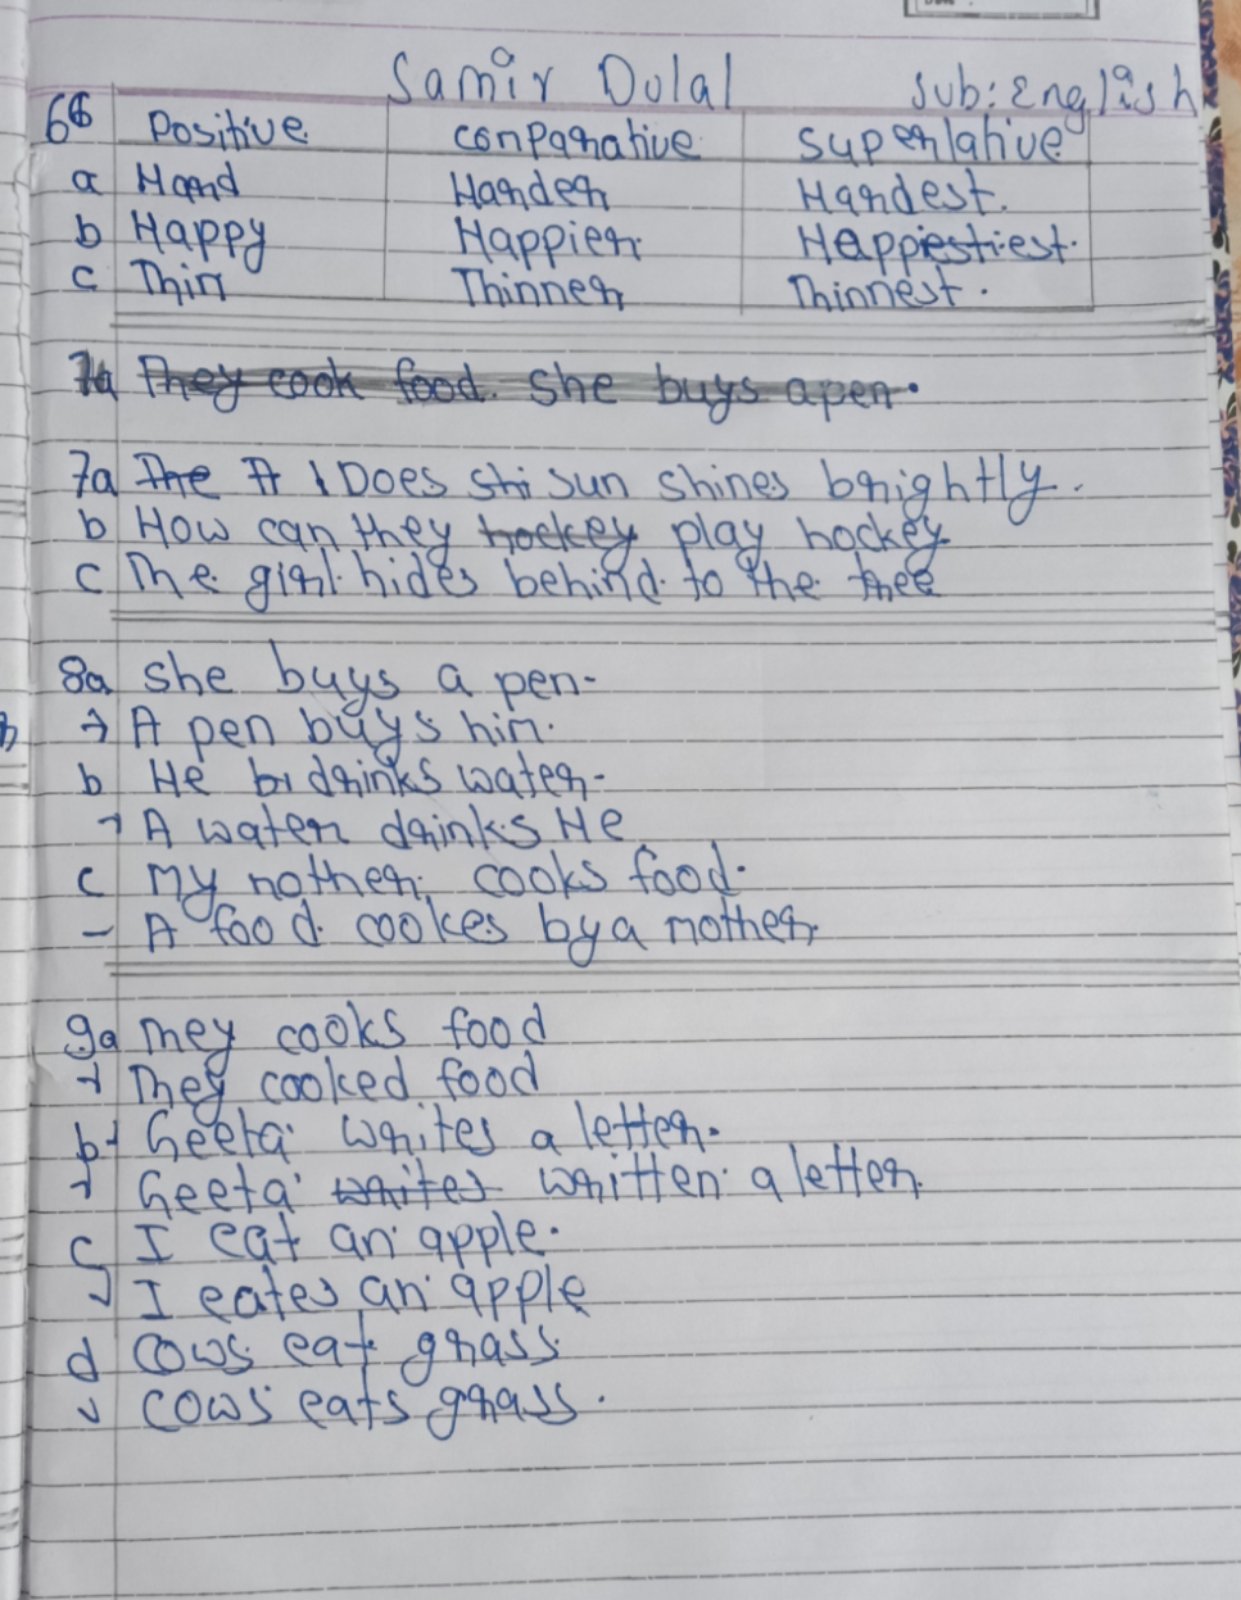 Samir Dulal Sub: English
66 Positive conparative superlative
a Hard Harder Hardest.
b Happy Happier Happiestiest.
c Thin Thinner Thinnest.
7a They cook food. She buys a pen.
7a The It Does shi sun shines brightly.
b How can they hockey play hockey
c The girl hides behind to the tree
8a she buys a pen-
→ A pen buys him.
b He bi drinks water-
→ A water drinks He
c My nother cooks food.
- A food cookes by a nother
9a They cooks food
→ They cooked food
b Geeta writes a letter.
→ Geeta writes written a letter
c I eat an apple.
→ I eates an apple
d cows eat grass
cows eats grass.